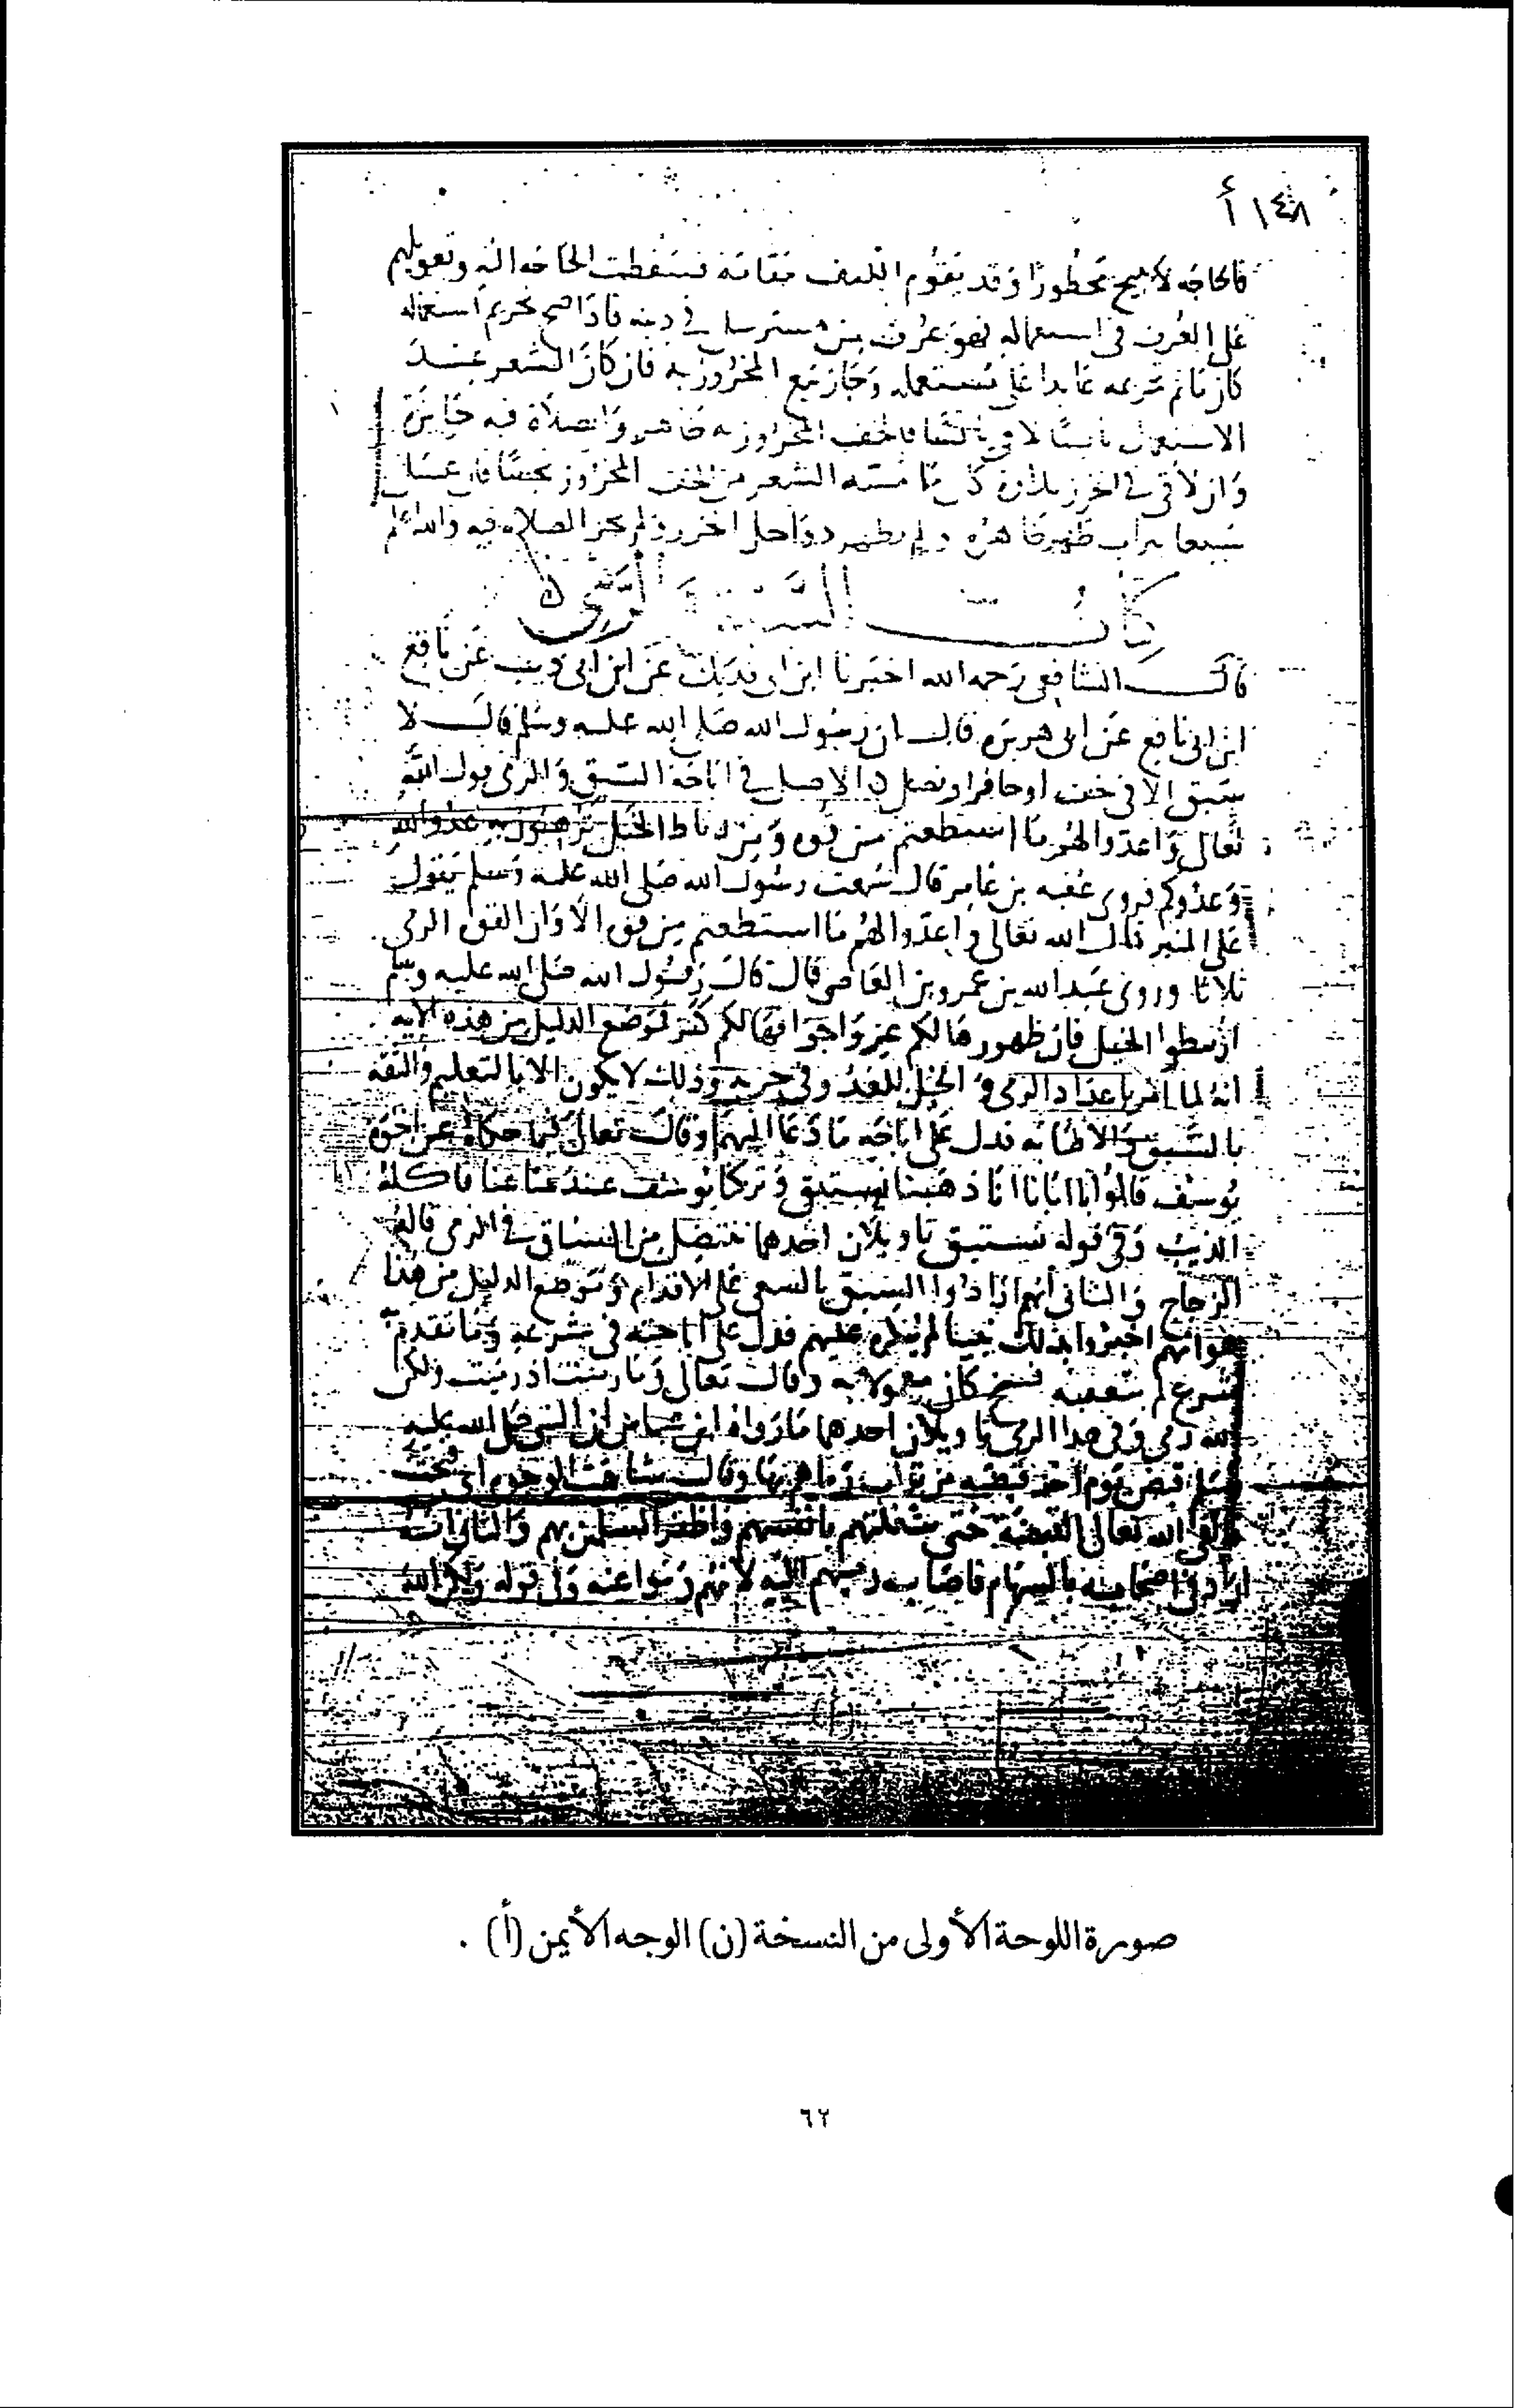 ١٤٨ أ
فالحاجه لا تبيح محظورا وقد يقوم الليف مقامه فسقطت الحاجه اليه وتعويلهم
على العرف في استعماله فهو عرف من مسترسل في دينه فاذا صح تحريم استعماله
كان تحريمه عايدا على مستعمله وجاز بيع المخروز به فان كان الشعر عند
الاستعمال يابسا لاقى يابسا فالخف المخروز به طاهر والصلاة فيه جايزة
وان لاقى في الخرز بللا كل ما مسه الشعر من الخف المخروز نجسا فان غسل
سبعا بتراب طهر ظاهره ولم يطهر دواخل الخرز ولم تجز الصلاه فيه والله اعلم
كتاب السبق والرمي
قال الشافعي رحمه الله اخبرنا ابن ابي فديك عن ابن ابي ذيب عن نافع
ابن ابي نافع عن ابي هريرة قال ان رسول الله صلى الله عليه وسلم قال لا
سبق الا في خف او حافر او نصل الاصل في اباحة السبق والرمي قول الله
تعالى واعدوا لهم ما استطعتم من قوة ومن رباط الخيل ترهبون به عدو الله
وعدوكم فروى عقبه بن عامر قال سمعت رسول الله صلى الله عليه وسلم يقول
على المنبر قال الله تعالى واعدوا لهم ما استطعتم من قوة الا وان القوة الرمي
ثلاثا وروى عبد الله بن عمرو بن العاص قال قال رسول الله صلى الله عليه وسلم
ارتبطوا الخيل فان ظهورها لكم عز واجوافها لكم كنز فموضع الدليل من هذه الايه
انه لما امر باعداد الرمي و الخيل للعدو وفي حربه وذلك لا يكون الا بالتعليم والثقه
بالسبق فدل على اباحه ما دعا اليهما وقال تعالى فيما حكاه عن اخوة
يوسف قالوا يا ابانا انا ذهبنا نستبق وتركنا يوسف عند متاعنا فاكله
الذيب وفي قوله نستبق تاويلان احدهما ننتضل من السباق في الرمي قاله
الزجاج والثاني انهم ارادوا السبق بالسعي على الاقدام وموضع الدليل من هذا
هو انهم اخبروا بذلك نبيا لم ينكره عليهم فدل على اباحته في شرعه وما تقدم
شرع لم يتعقبه نسخ كان معمولا به وقال تعالى وما رميت اذ رميت ولكن
الله رمى وفي هذا الرمي تاويلان احدهما ما رواه ابن عباس ان النبي صلى الله عليه
وسلم قبض يوم احد قبضه من تراب رماهم بها وقال شاهت الوجوه اي قبحت
فالقى الله تعالى القبضة حتى شغلتهم بانفسهم واظفر المسلمين بهم والثاني انه
اراد في اصحابه بالسهام فاصاب رميهم اليه لانهم رموا عنه وفي قوله ولكن الله
صورة اللوحة الأولى من النسخة (ن) الوجه الأيمن (أ) .
٦٢